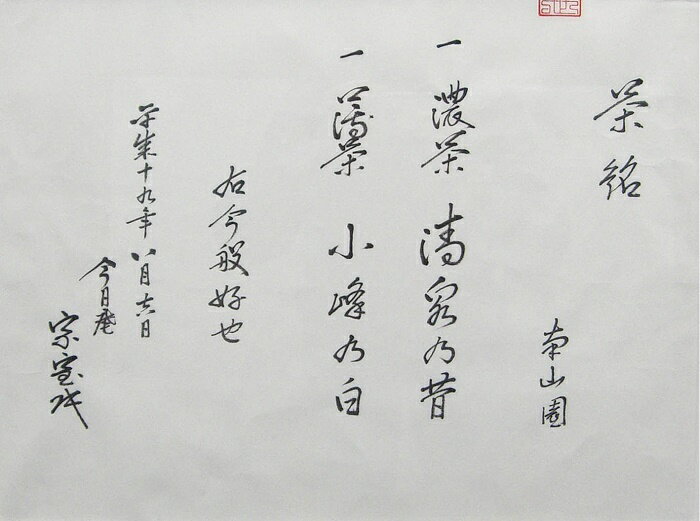 茶銘
南山園
一 濃茶 清泉乃昔
一 薄茶 小峰乃白
右今般好也
平成十九年八月六日
今日庵
宗室